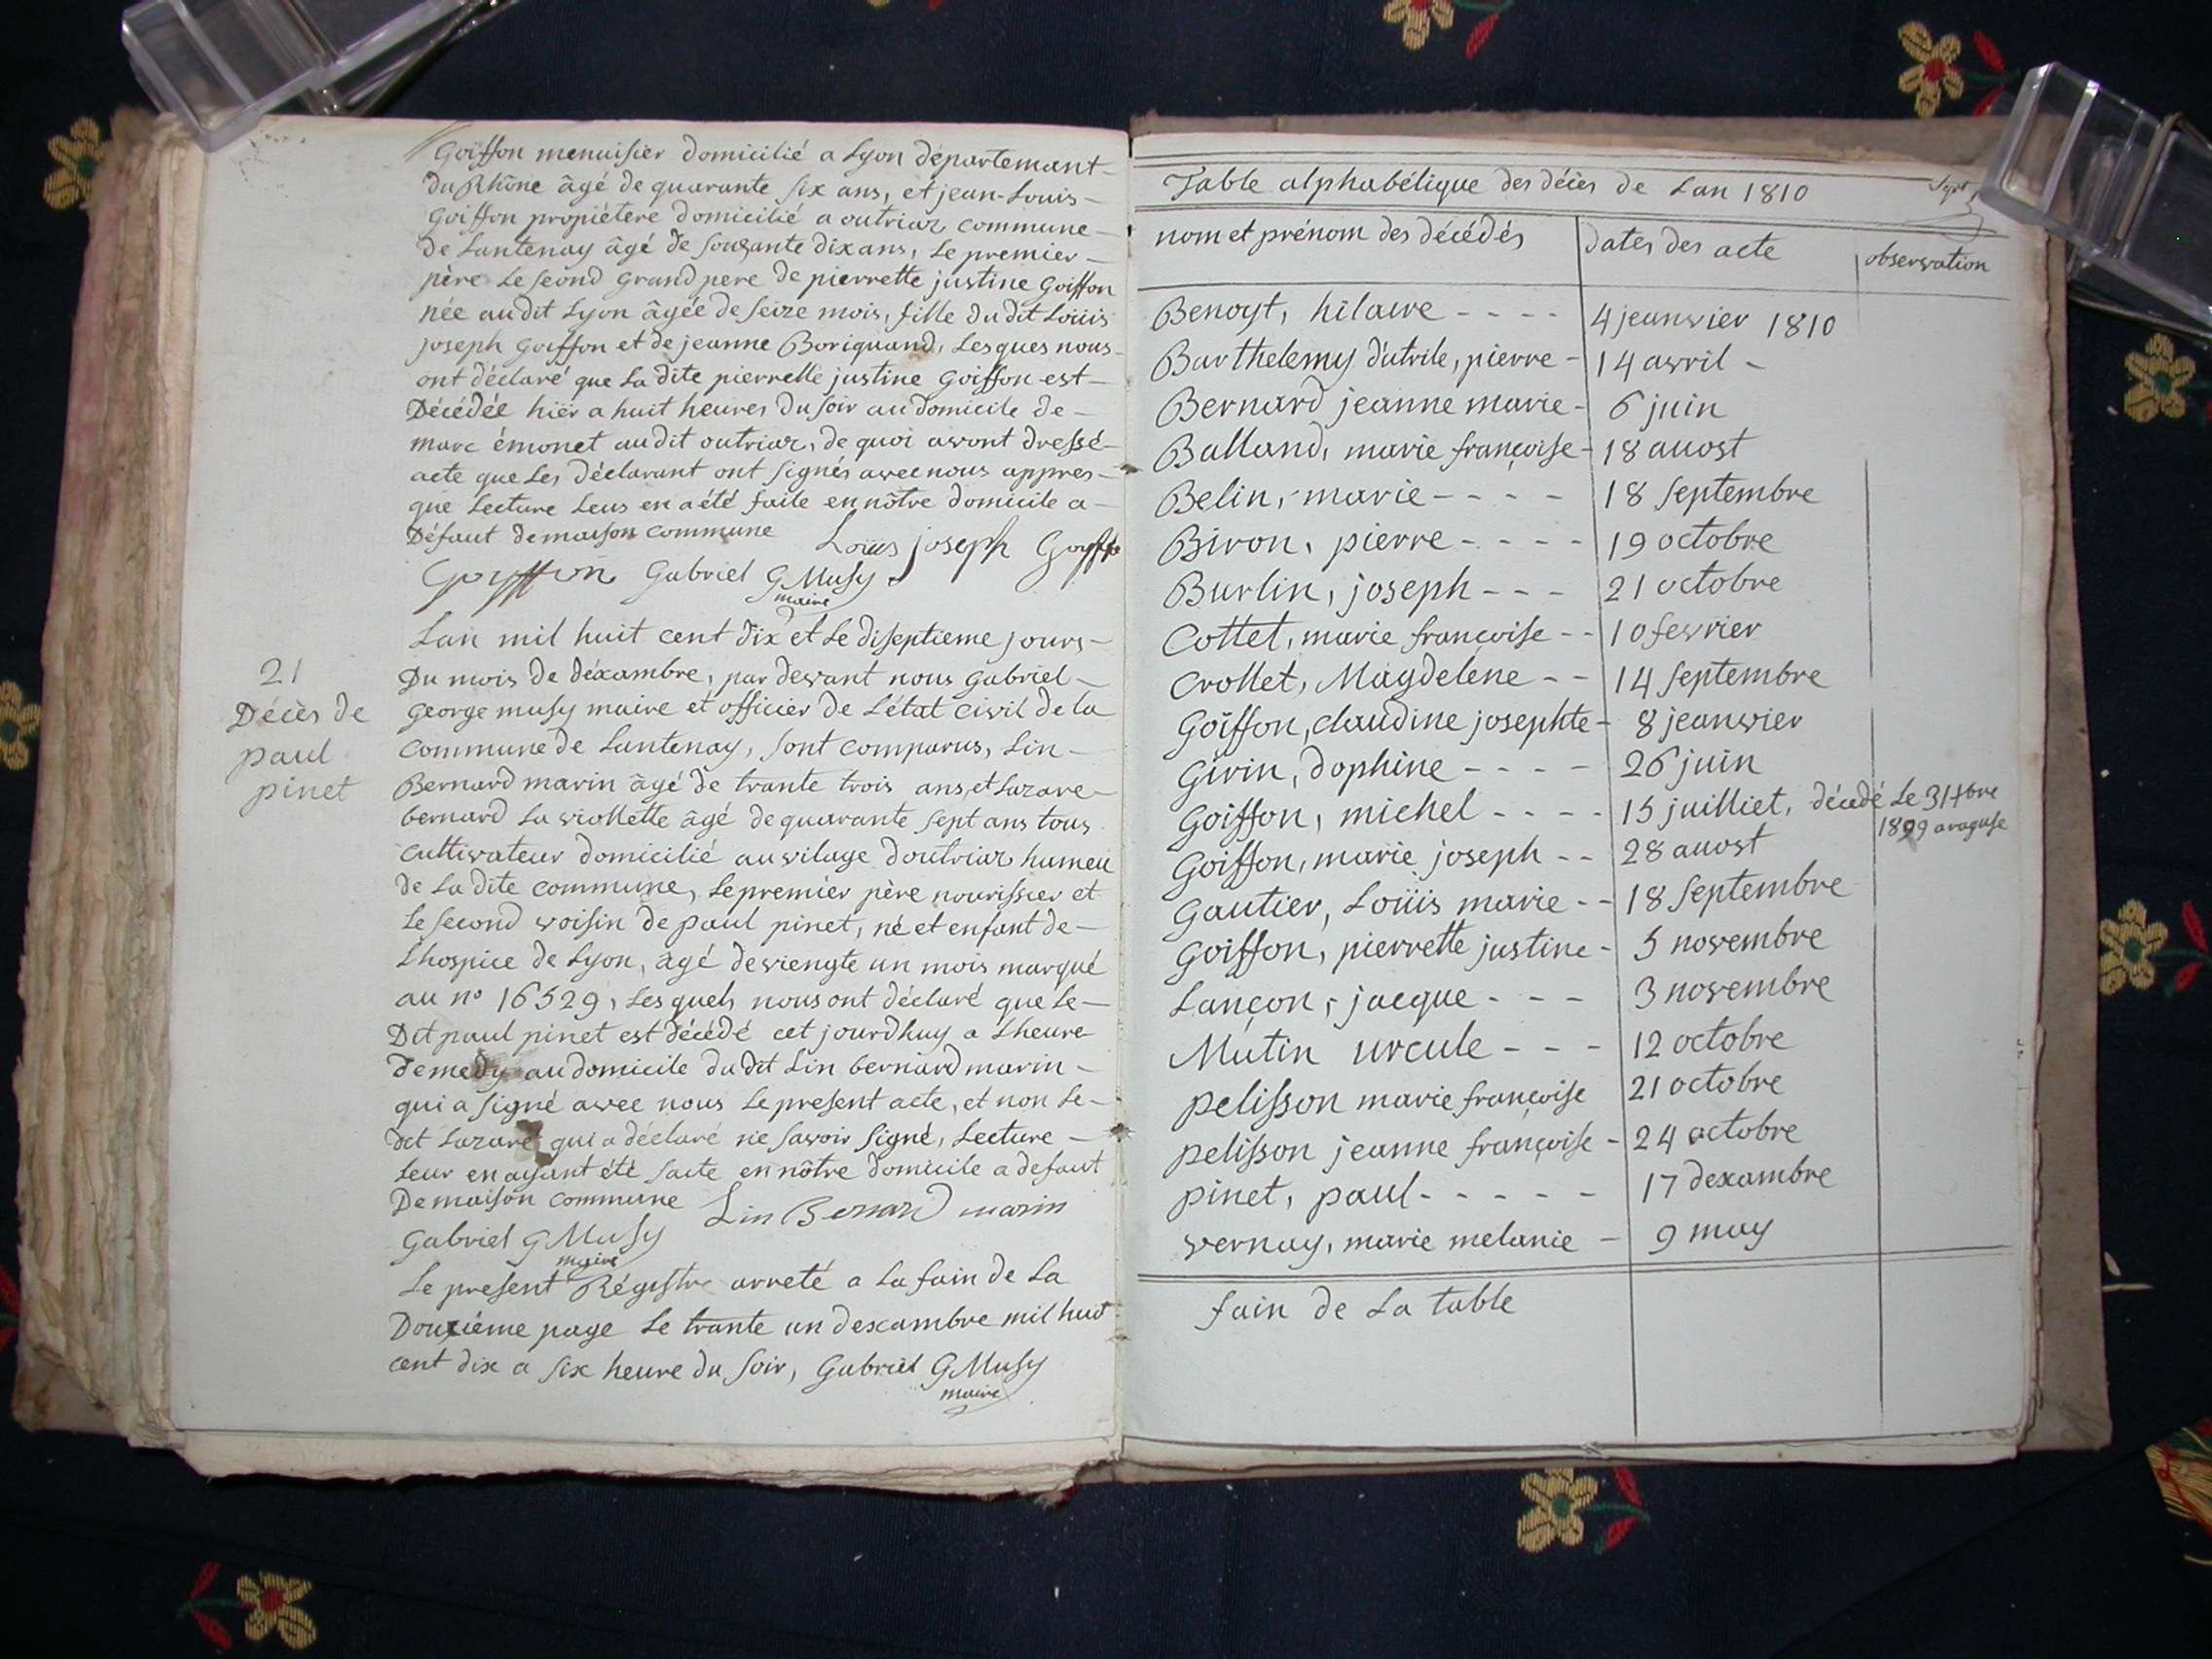 Goiffon menuisier domicilié a Lyon départemant
du Rhône âgé de quarante six ans, et jean-Louis
Goiffon propiétere domicilié a outriaz commune
de Lantenay âgé de souxante dix ans, Le premier
père Le seond grand pere de pierrette justine Goiffon
née audit Lyon âgée de seize mois, fille du dit Loüis
joseph Goiffon et de jeanne Boriquand, Lesques nous
ont déclaré que La dite pierrette justine Goiffon est
Décédée hiër a huit heures du soir au domicile de
marc émonet audit outriaz, de quoi avont dressé
acte que Les Déclarant ont signés avec nous appres
que Lecture Leus en a été faite en nôtre domicile a
Défaut de maison commune Loüis joseph Goyffo
Goyffon Gabriel G Musy
maire
Lan mil huit cent dix et Le diseptieme jours
21
Du mois de déxambre, par devant nous Gabriel
Décès de
George musy maire et officier de L'état civil de la
paul
commune de Lantenay, sont comparus, Lin
pinet
Bernard marin âgé de trante trois ans, et Lazare
bernard La viollette âgé de quarante sept ans tous
cultivateur domicilié au vilage doutriaz hameu
de La dite commune, Le premier père nourissier et
Le second voisin de paul pinet, né et enfant de
L'hospice de Lyon, âgé de viengte un mois marqué
au n° 16529, Les quels nous ont déclaré que Le
Dit paul pinet est décédé cet jourdhuy a Lheure
de medy au domicile du dit Lin bernard marin
qui a signé avec nous Le present acte, et non Le
dit Lazare qui a déclaré ne savoir signé, Lecture
Leur en ayant été faite en nôtre domicile a defaut
De maison commune Lin Bernard marin
Gabriel G Musy
maire
Le present Régistre arreté a La fain de La
Douzième page Le trante un dexambre mil huit
cent dix a six heure du soir, Gabriel G Musy
maire
Table alphabétique des décès de Lan 1810
nom et prénom des décédés dates des acte observation
Benoyt, hilaire - - - - 4 jeanvier 1810
Barthelemy d'utrile, pierre - 14 avril -
Bernard jeanne marie - 6 juin
Balland, marie françoise - 18 auost
Belin, marie - - - - 18 septembre
Biron, pierre - - - - 19 octobre
Burlin, joseph - - - 21 octobre
Cottet, marie françoise - - 10 fevrier
Crollet, Magdelene - - 14 septembre
Goïffon, claudine josephte - 8 jeanvier
Girin, dophine - - - - 26 juin
Goiffon, michel - - - - 15 juilliet, décedé Le 31 +bre
1809 araguse
Goiffon, marie joseph - - 28 auost
Gautier, Loüis marie - - 18 septembre
Goiffon, pierrette justine - 5 novembre
Lançon, jacque - - - 3 novembre
Mutin urcule - - - 12 octobre
pelisson marie françoise 21 octobre
pelisson jeanne françoise - 24 octobre
pinet, paul - - - - - 17 dexambre
vernay, marie melanie - 9 may
fain de La table